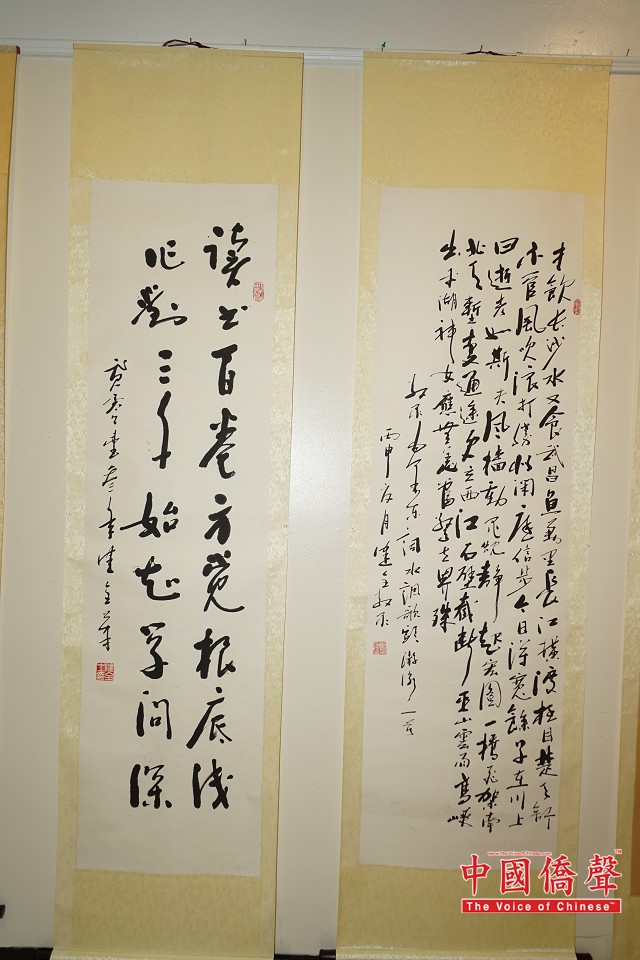 才飲長沙水又食武昌魚萬里長江橫渡極目楚天舒
不管風吹浪打勝似閑庭信步今日得寬餘子在川上
曰逝者如斯夫風檣動龜蛇靜起宏圖一橋飛架南
北天塹變通途更立西江石壁截斷巫山雲雨高峽
出平湖神女應無恙當驚世界殊
毛澤東詞水調歌頭游泳一首
丙申
讀書百卷方覺根底淺
三年始知學問深
中國僑聲
www.TheVoiceOfChinese.com
The Voice of Chinese™